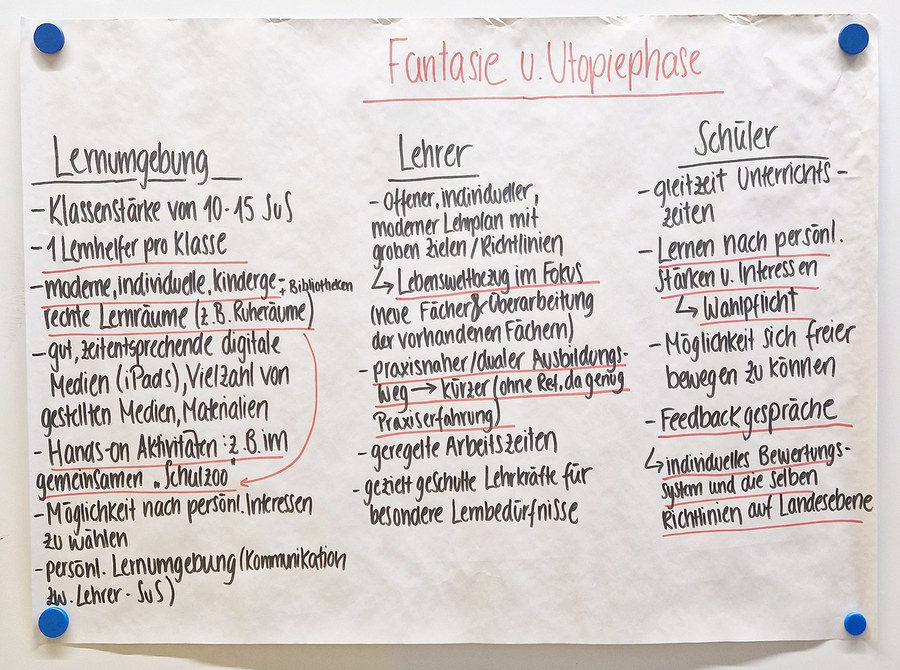 Fantasie u. Utopiephase
Lernumgebung
- Klassenstärke von 10-15 SuS
- 1 Lernhelfer pro Klasse
- moderne, individuelle, kinderge- + Bibliotheken
rechte Lernräume (z.B. Ruheräume)
- gut, zeitentsprechende digitale
Medien (iPads), Vielzahl von
gestellten Medien, Materialien
- Hands-on Aktivitäten: z.B. im
gemeinsamen „Schulzoo"
- Möglichkeit nach persönl. Interessen
zu wählen
- persönl. Lernumgebung (Kommunikation
zw. Lehrer - SuS)
Lehrer
- Offener, individueller,
moderner Lehrplan mit
groben Zielen / Richtlinien
↳ Lebensweltbezug im Fokus
(neue Fächer & Überarbeitung
der vorhandenen Fächern)
- praxisnaher/dualer Ausbildungs-
weg → kürzer (ohne Ref, da genug
Praxiserfahrung)
- geregelte Arbeitszeiten
- gezielt geschulte Lehrkräfte für
besondere Lernbedürfnisse
Schüler
- gleitzeit Unterrichts-
zeiten
- Lernen nach persönl.
Stärken u. Interessen
↳ Wahlpflicht
- Möglichkeit sich freier
bewegen zu können
- Feedbackgespräche
↳ individuelles Bewertungs-
system und die selben
Richtlinien auf Landesebene